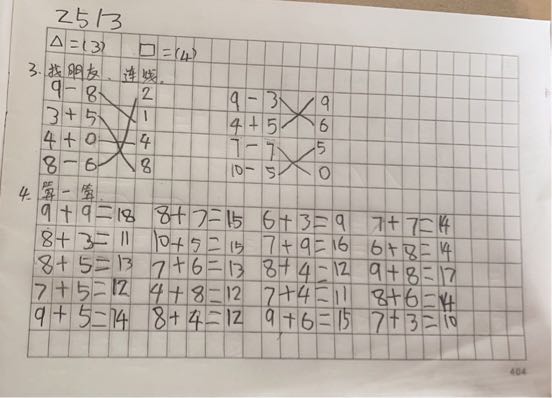 2513
△=(3) □=(4)
3. 找朋友、连线
9-8 2 9-3 9
3+5 1 4+5 6
4+0 4 7-7 5
8-6 8 10-5 0
4. 算一算
9+9=18 8+7=15 6+3=9 7+7=14
8+3=11 10+5=15 7+9=16 6+8=14
8+5=13 7+6=13 8+4=12 9+8=17
7+5=12 4+8=12 7+4=11 8+6=14
9+5=14 8+4=12 9+6=15 7+3=10
404